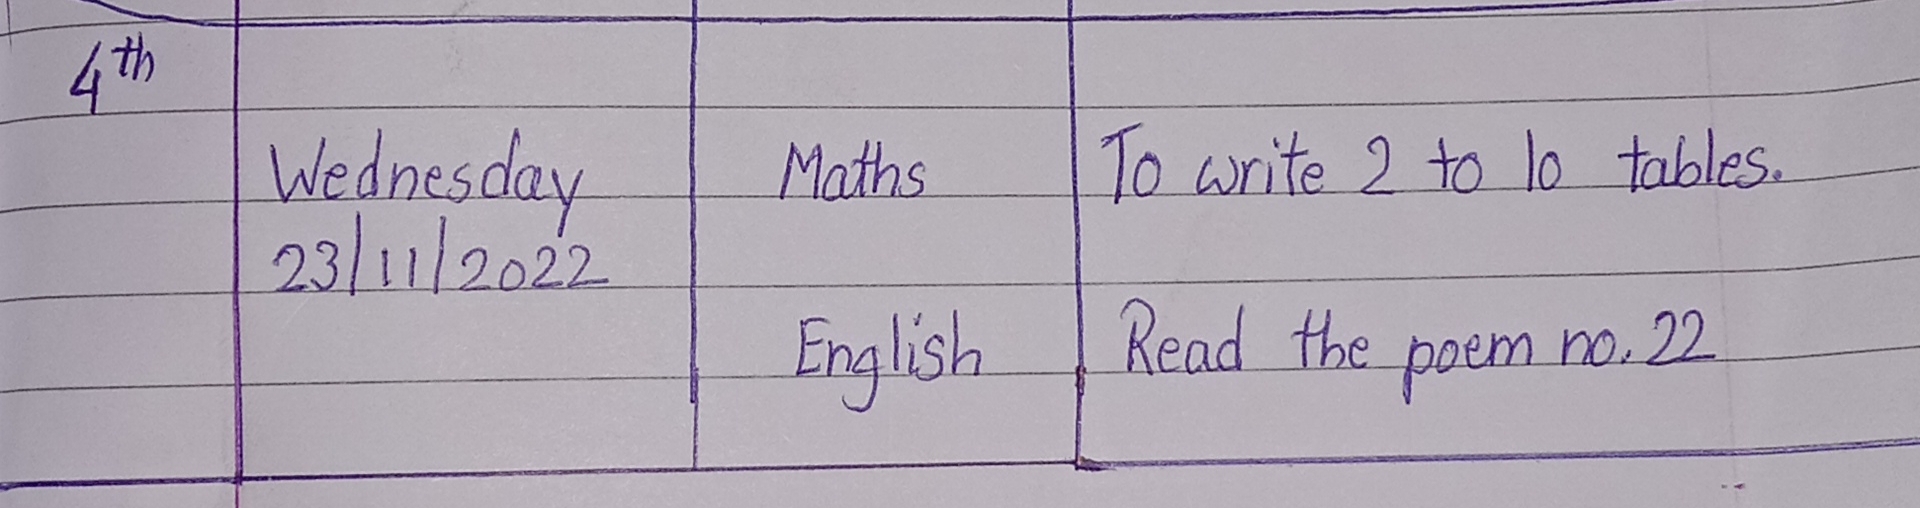 4th
Wednesday Maths To write 2 to 10 tables.
23/11/2022
English Read the poem no. 22